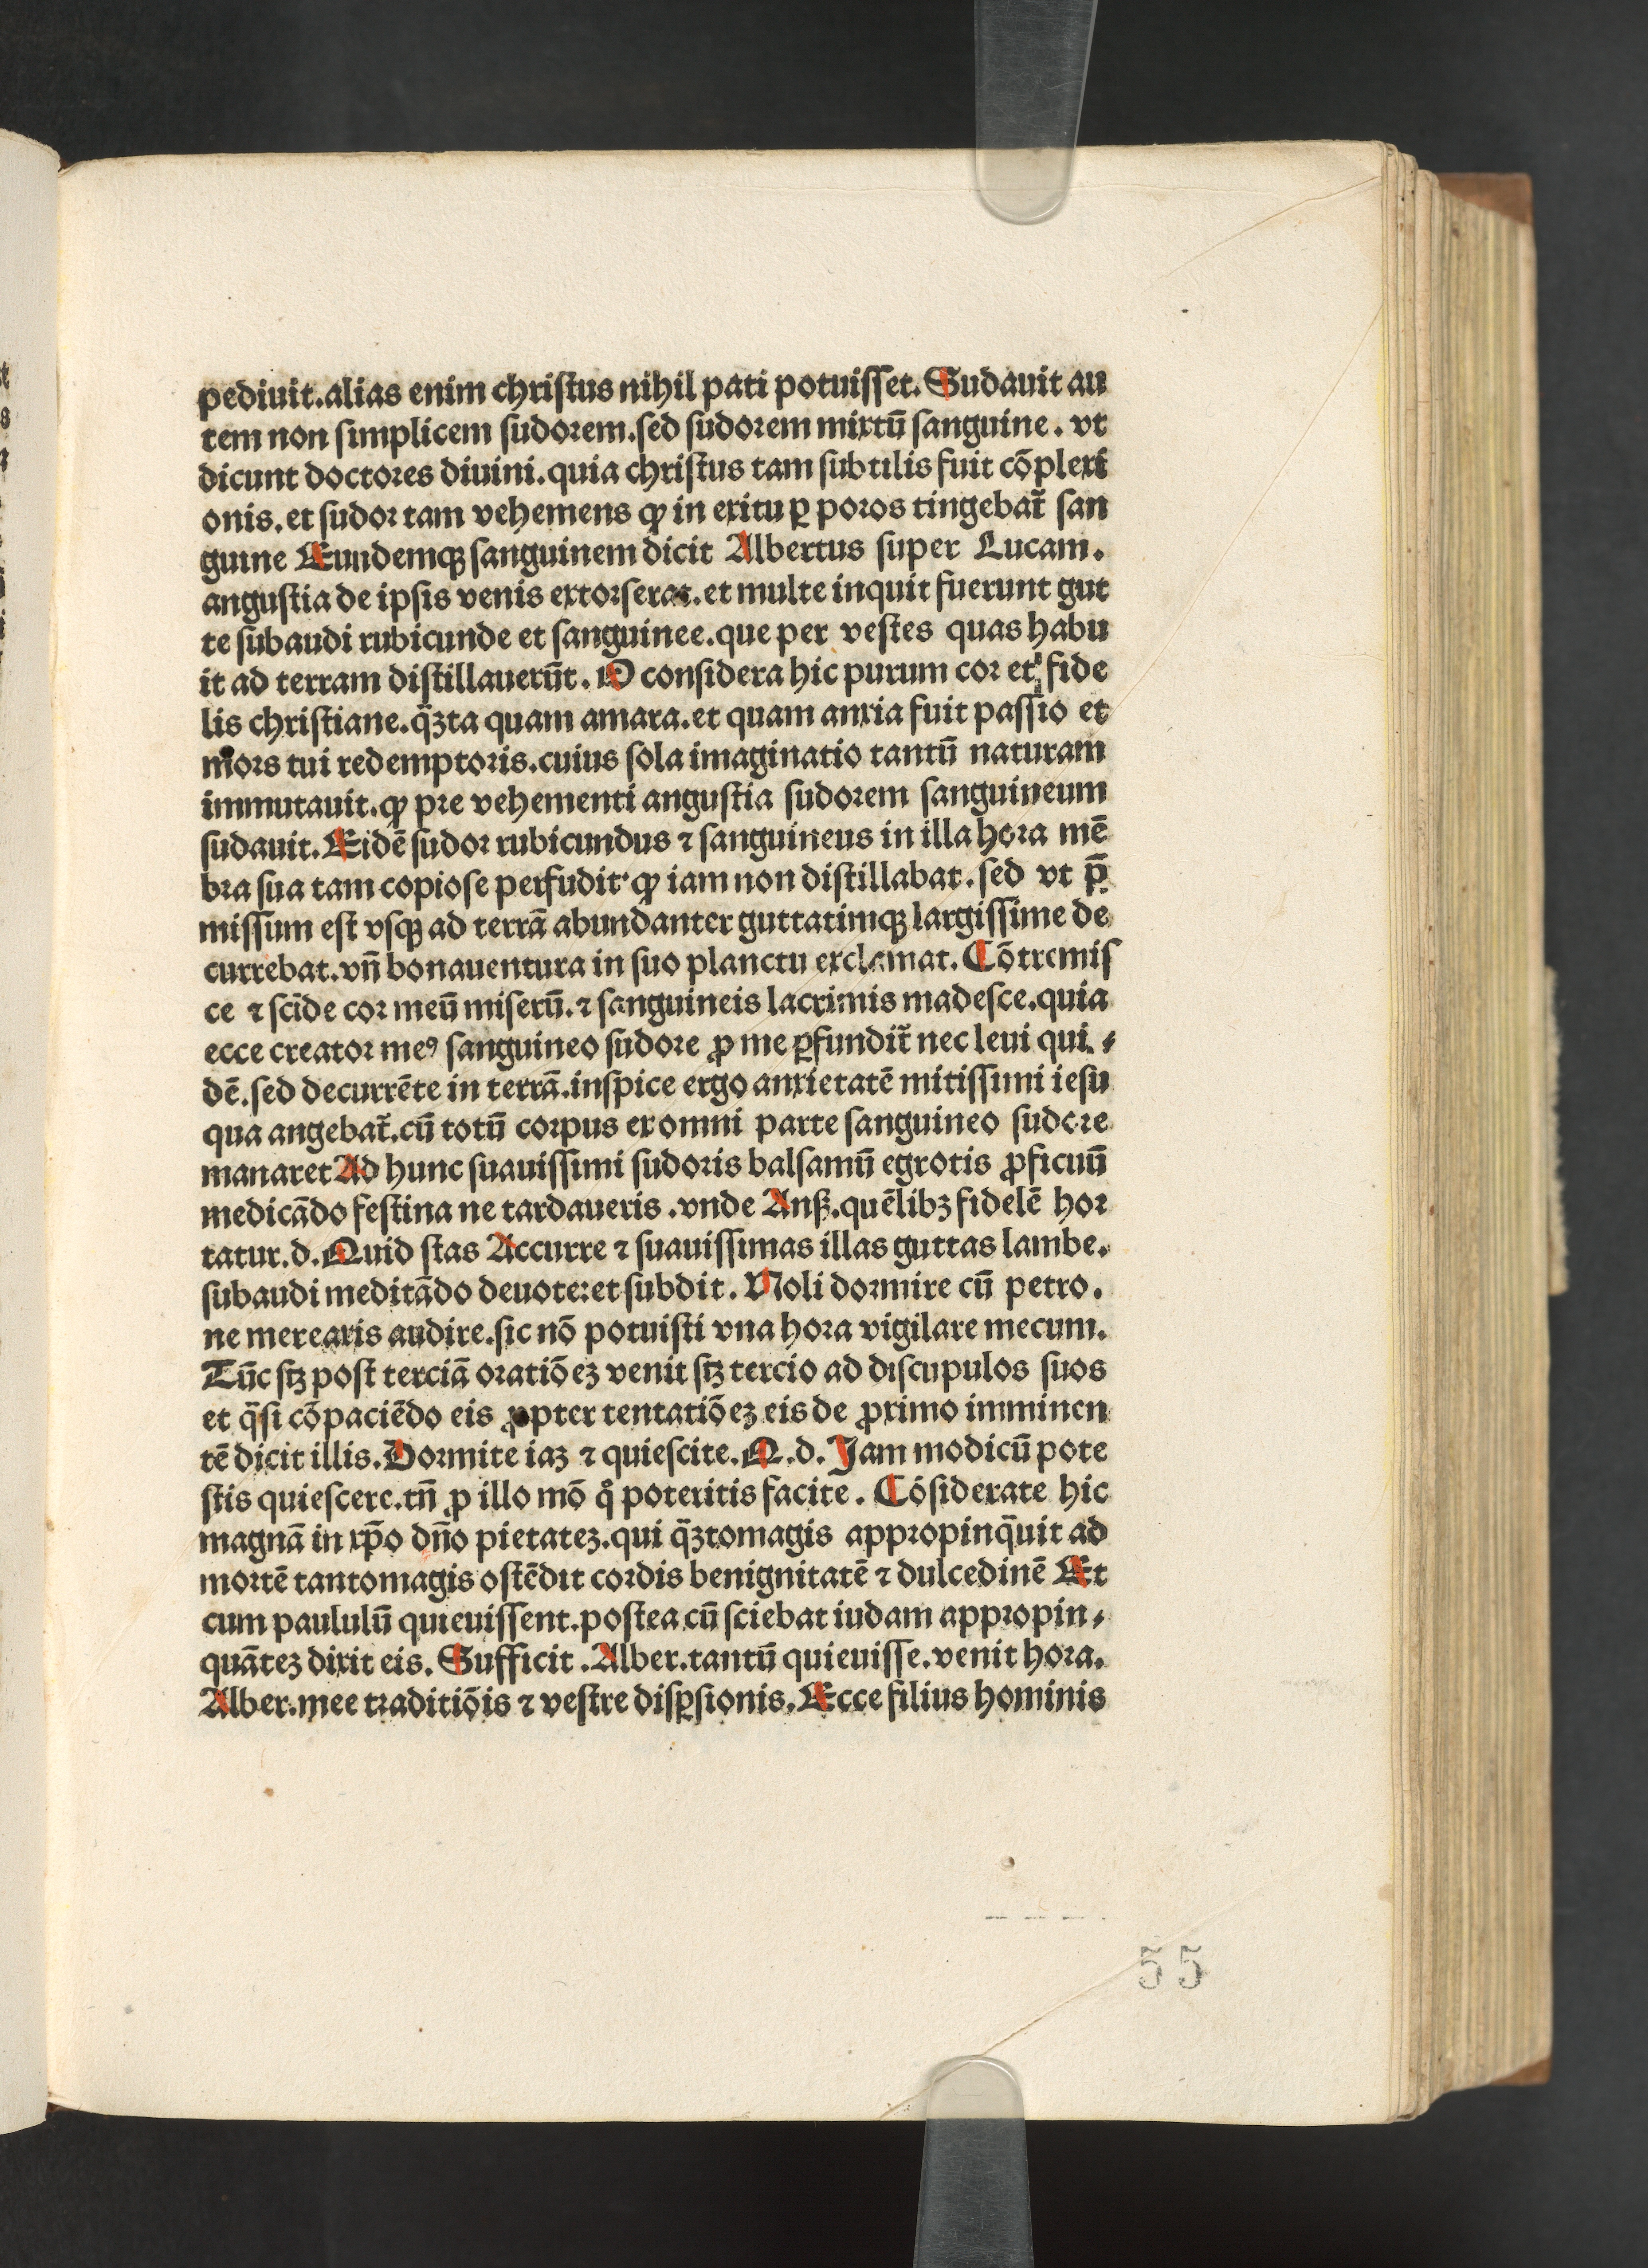 pediuit.alias enim chriſtus nihil pati potuiſſet. Sudauit au
tem non ſimplicem ſudorem.ſed ſudorem mixtū ſanguine. vt
dicunt doctores diuini.quia chriſtus tam ſubtilis fuit cōplexi
onis.et ſudor tam vehemens ꝙ in exitu ꝑ poros tingebat᷑ ſan
guine Eundemqꝫ ſanguinem dicit Albertus ſuper Lucam.
anguſtia de ipſis venis extorſerat.et multe inquit fuerunt gut
te ſubaudi rubicunde et ſanguinee.que per veſtes quas habu
it ad terram diſtillauerūt. O conſidera hic purum cor et fide
lis chriſtiane.q̄ꝫta quam amara.et quam anxia fuit paſſio et
mors tui redemptoris.cuius ſola imaginatio tantū naturam
immutauit.ꝙ pre vehementi anguſtia ſudorem ſanguineum
ſudauit.Eidē ſudor rubicundus ⁊ ſanguineus in illa hora mē
bra ſua tam copioſe perfudit·ꝙ iam non diſtillabat.ſed vt p̄
miſſum eſt vſqꝫ ad terrā abundanter guttatimqꝫ largiſſime de
currebat.vn̄ bonauentura in ſuo planctu exclamat. Cōtremiſ
ce ⁊ ſcīde cor meū miſerū.⁊ ſanguineis lacrimis madeſce.quia
ecce creator meꝰ ſanguineo ſudore ꝓ me ꝑfundit᷑ nec leui qui⸗
dē.ſed decurrēte in terrā.inſpice ergo anxietatē mitiſſimi ieſu
qua angebat᷑.cū totū corpus ex omni parte ſanguineo ſudore
manaret Ad hunc ſuauiſſimi ſudoris balſamū egrotis ꝓficuū
medicādo feſtina ne tardaueris .vnde Anß.quēlibꝫ fidelē hor
tatur.d.Quid ſtas Accurre ⁊ ſuauiſſimas illas guttas lambe.
ſubaudi meditādo deuote:et ſubdit. Noli dormire cū petro.
ne merearis audire.ſic nō potuiſti vna hora vigilare mecum.
Tūc ſꝫ poſt terciā oratiōeꝫ venit ſꝫ tercio ad diſcupulos ſuos
et q̄ſi cōpaciēdo eis ꝓpter tentatiōeꝫ eis de ꝓximo imminen
tē dicit illis.Dormite iaꝫ ⁊ quieſcite.Q.d. Jam modicū pote
ſtis quieſcere.tn̄ ꝓ illo mō qͦ poteritis facite. Cōſiderate hic
magnā in xp̄o dn̄o pietateꝫ.qui q̄ꝫtomagis appropinq̄uit ad
mortē tantomagis oſtēdit cordis benignitatē ⁊ dulcedinē Et
cum paululū quieuiſſent.poſtea cū ſciebat iudam appropin⸗
quāteꝫ dixit eis. Sufficit .Alber.tantū quieuiſſe.venit hora.
Alber.mee traditiōis ⁊ veſtre diſꝑſionis.Ecce filius hominis
55